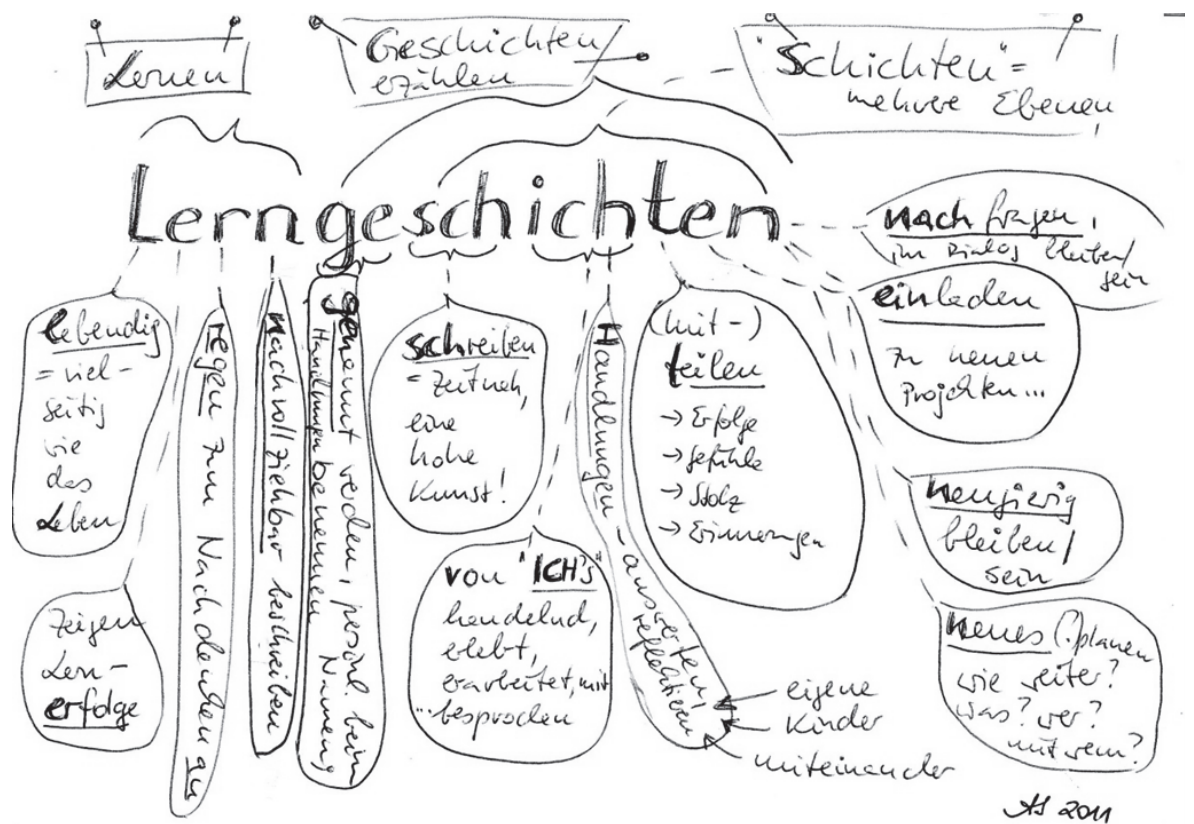 Lernen
Geschichten
erzählen
"Schichten" =
mehrere Ebenen
Lerngeschichten
lebendig
= viel-
seitig
wie
das
Leben
zeigen
Lern-
erfolge
regen zum Nachdenken an
nachvollziehbar beschreiben
genannt werden, persönl. beim Namen
Handlungen benennen
schreiben
= zeitnah,
eine
hohe
Kunst!
von "ICH's"
handelnd,
erlebt,
erarbeitet, mit
... besprochen
Handlungen - auswerten/
reflektieren
eigene
Kinder
miteinander
(mit-)
teilen
→ Erfolge
→ Gefühle
→ Stolz
→ Erinnerungen
nachfragen,
im Dialog bleiben/
sein
einladen
zu neuen
Projekten...
neugierig
bleiben/
sein
neues (.)planen
wie weiter?
was? wer?
mit wem?
AS 2011